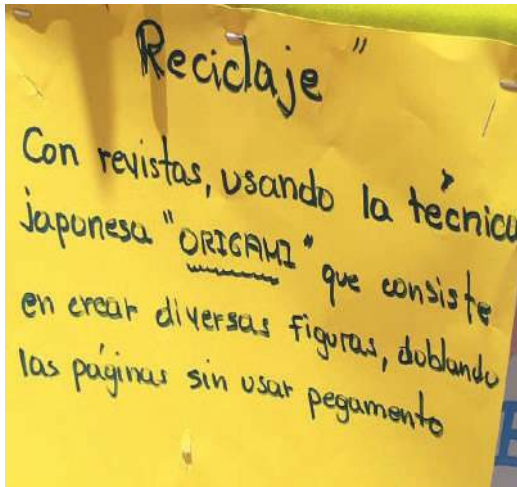 Reciclaje"
Con revistas, usando la técnica
japonesa "ORIGAMI" que consiste
en crear diversas figuras, doblando
las páginas sin usar pegamento